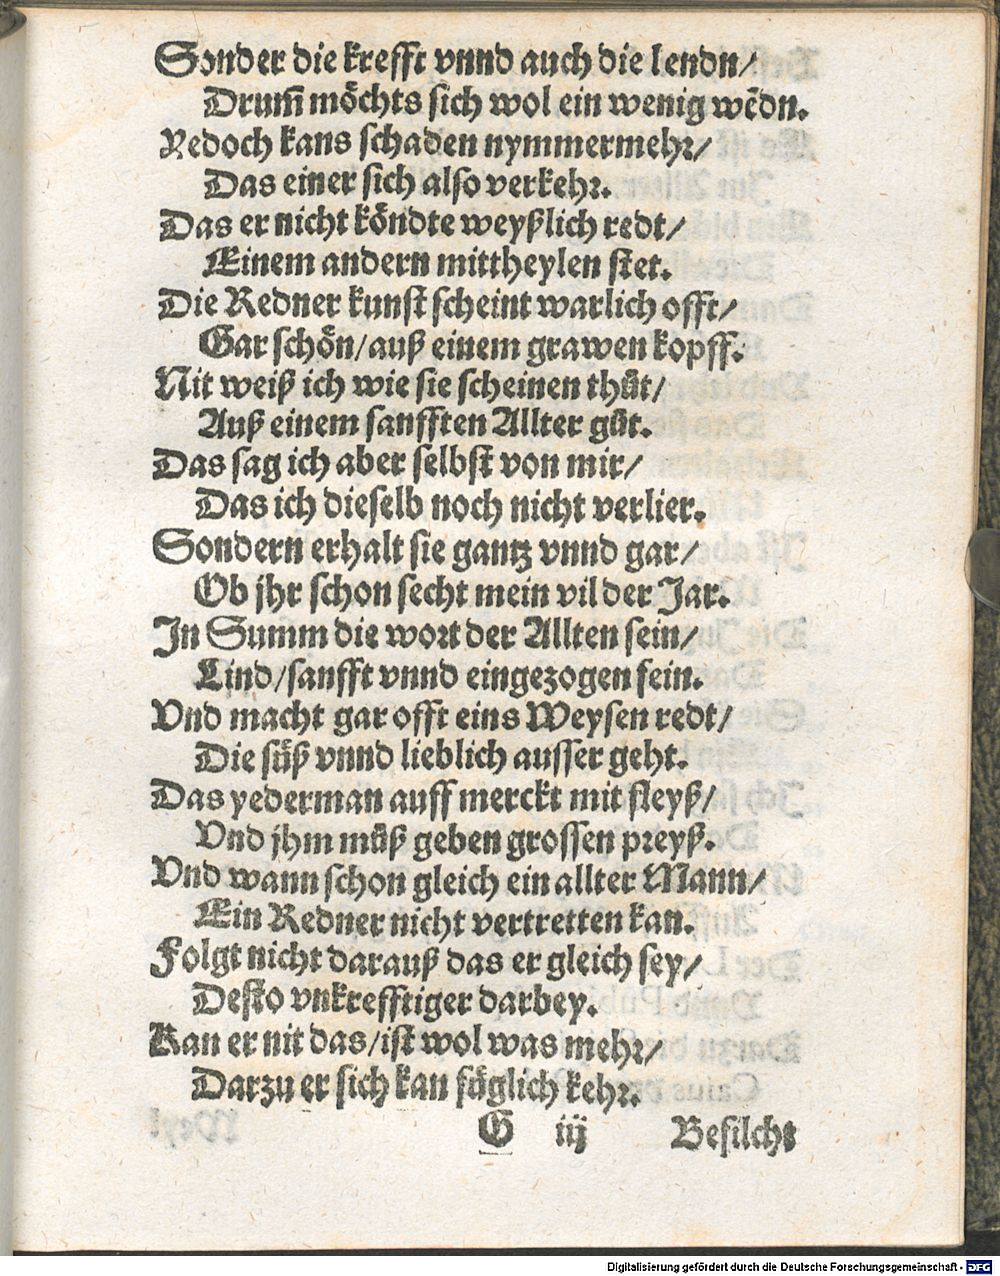 Sonder die krefft vnnd auch die lendn/
Drum̃ möchts sich wol ein wenig wẽdn.
Yedoch kans schaden nymmermehr/
Das einer sich also verkehr.
Das er nicht köndte weyßlich redt/
Einem andern mittheylen stet.
Die Redner kunst scheint warlich offt/
Gar schön/auß einem grawen kopff.
Nit weiß ich wie sie scheinen thůt/
Auß einem sanfften Allter gůt.
Das sag ich aber selbst von mir/
Das ich dieselb noch nicht verlier.
Sondern erhalt sie gantz vnnd gar/
Ob jhr schon secht mein vil der Jar.
In Summ die wort der Allten sein/
Lind/sanfft vnnd eingezogen fein.
Vnd macht gar offt eins Weysen redt/
Die süß vnnd lieblich ausser geht.
Das yederman auff merckt mit fleyß/
Vnd jhm můß geben grossen preyß.
Vnd wann schon gleich ein allter Mann/
Ein Redner nicht vertretten kan.
Folgt nicht darauß das er gleich sey/
Desto vnkrefftiger darbey.
Kan er nit das/ist wol was mehr/
Darzu er sich kan füglich kehr.
G iij Befilcht
Digitalisierung gefördert durch die Deutsche Forschungsgemeinschaft - DFG